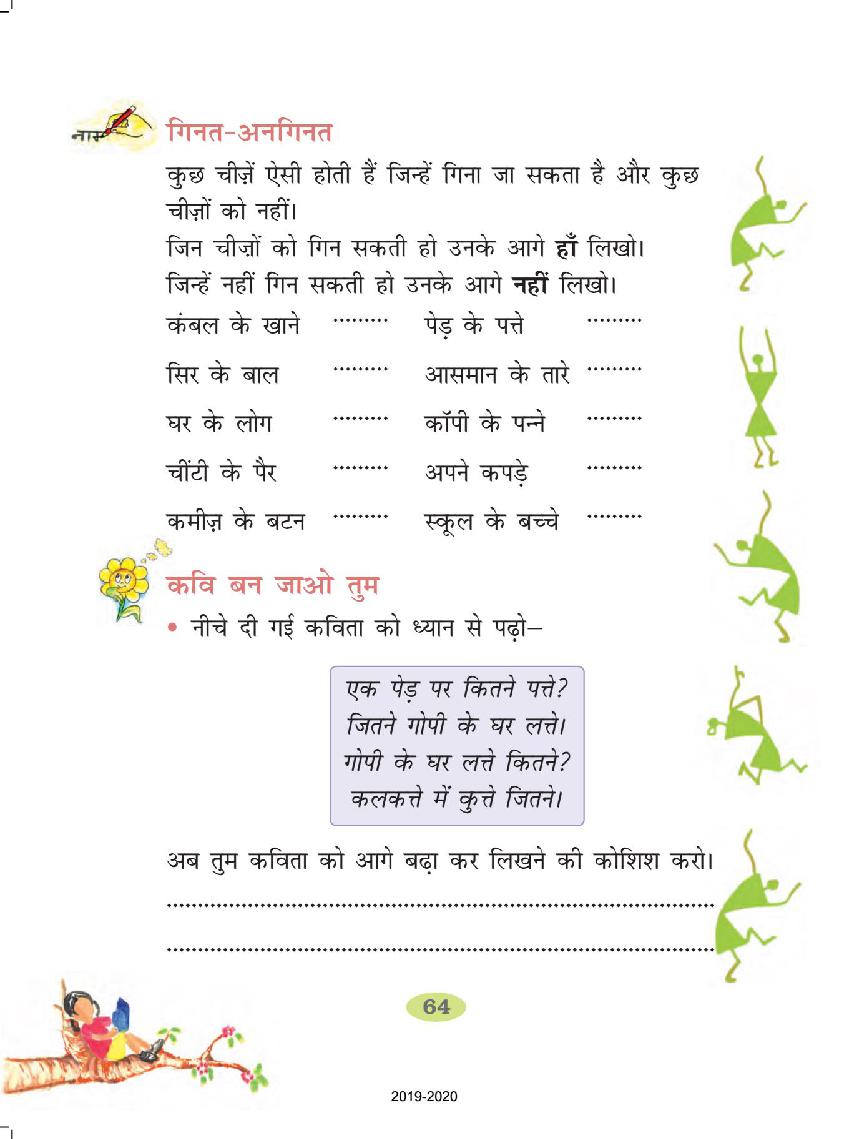 नाम
गिनत-अनगिनत
कुछ चीज़ें ऐसी होती हैं जिन्हें गिना जा सकता है और कुछ
चीज़ों को नहीं।
जिन चीज़ों को गिन सकती हो उनके आगे हाँ लिखो।
जिन्हें नहीं गिन सकती हो उनके आगे नहीं लिखो।
कंबल के खाने ......... पेड़ के पत्ते .........
सिर के बाल ......... आसमान के तारे .........
घर के लोग ......... कॉपी के पन्ने .........
चींटी के पैर ......... अपने कपड़े .........
कमीज़ के बटन ......... स्कूल के बच्चे .........
कवि बन जाओ तुम
• नीचे दी गई कविता को ध्यान से पढ़ो–
एक पेड़ पर कितने पत्ते?
जितने गोपी के घर लत्ते।
गोपी के घर लत्ते कितने?
कलकत्ते में कुत्ते जितने।
अब तुम कविता को आगे बढ़ा कर लिखने की कोशिश करो।
64
2019-2020